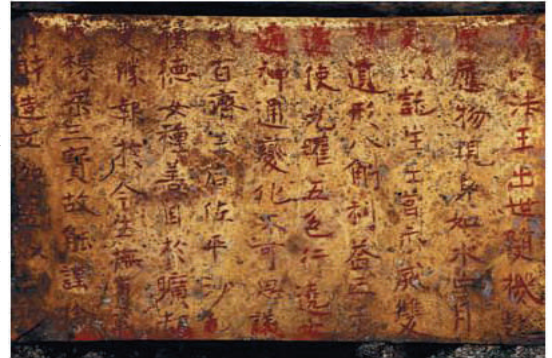 竊以法王出世隨機赴
感應物現身如水中月
是以託生王宮示滅雙
樹遺形八斛利益三千
遂使光曜五色行遶七
遍神通變化不可思議
我百濟王后佐平沙乇
積德女種善因於曠劫
受勝報於今生撫育萬
民棟梁三寶故能謹捨
淨財造立伽藍以